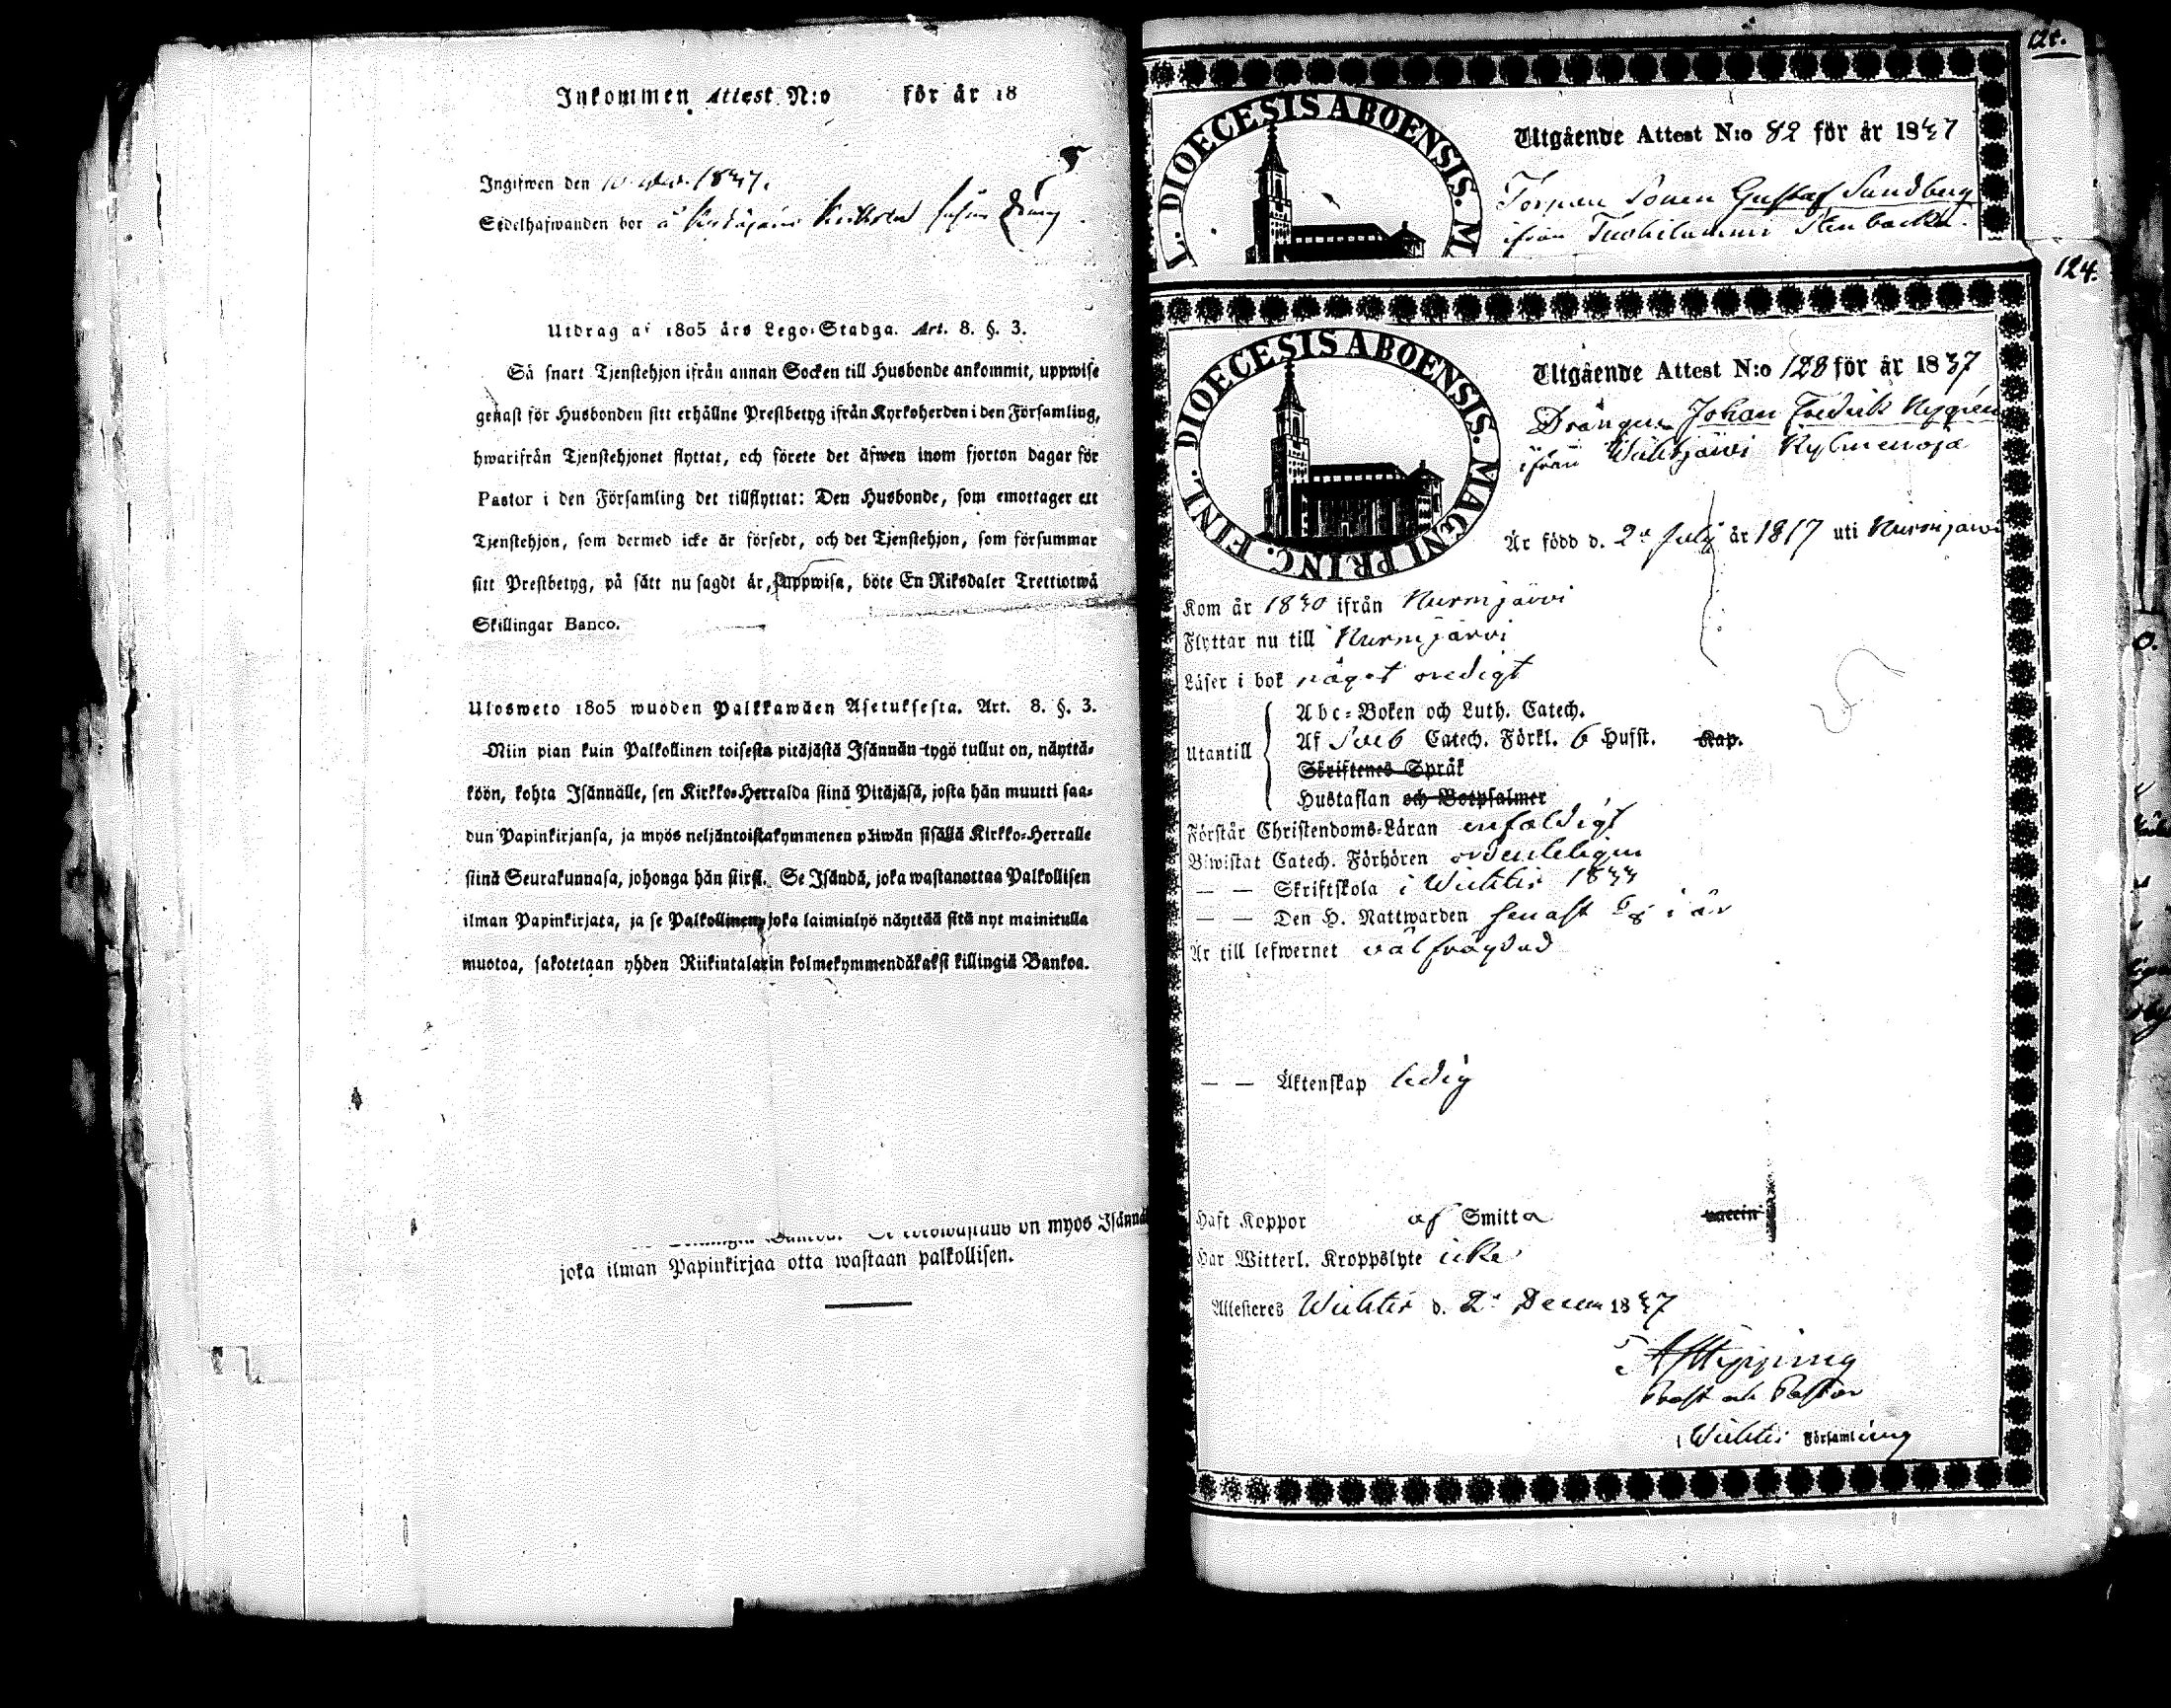 Inkommen Attest N:o för år 18
Ingifwen den 1837.
Sedelhafwanden bor å
Utdrag af 1805 års Lego-Stadga. Art. 8. §. 3.
Så snart Tjenstehjon ifrån annan Socken till Husbonde ankommit, uppwise
genast för Husbonden sitt erhållne Prestbetyg ifrån Kyrkoherden i den Församling,
hwarifrån Tjenstehjonet flyttat, och förete det äfwen inom fjorton dagar för
Pastor i den Församling det tillflyttat: Den Husbonde, som emottager ett
Tjenstehjon, som dermed icke är försedt, och det Tjenstehjon, som försummar
sitt Prestbetyg, på sätt nu sagdt är, uppwisa, böte En Riksdaler Trettiotwå
Skillingar Banco.
Ulosweto 1805 wuoden Palkkawäen Asetuksesta. Art. 8. §. 3.
Niin pian kuin Palkollinen toisesta pitäjästä Isännän tygö tullut on, näyttä-
köön, kohta Isännälle, sen Kirkko-Herralda siinä Pitäjäsä, josta hän muutti saa-
dun Papinkirjansa, ja myös neljäntoistakymmenen päiwän sisällä Kirkko-Herralle
siinä Seurakunnasa, johonga hän siirsi. Se Isändä, joka wastanottaa Palkollisen
ilman Papinkirjata, ja se Palkollinen, joka laiminlyö näyttää sitä nyt mainitulla
muotoa, sakotetaan yhden Riikintalarin kolmekymmendäkaksi killingiä Bankoa.
on myös Isännä
joka ilman Papinkirjaa otta wastaan palkollisen.
DIOECESIS ABOENSIS. M
Utgående Attest N:o 82 för år 1837
Torpare Sonen Gustaf Sundberg
ifrån Stenbacka.
124.
DIOECESIS ABOENSIS. MAGNI PRINC. FINL.
Utgående Attest N:o 128 för år 1837
Drängen Johan Fredrik Nygrén
ifrån Wihtijärwi Kylmenoja
Är född d. 2 Julij år 1817 uti Nurmijärwi
Kom år 1830 ifrån Nurmijärwi
Flyttar nu till Nurmijärwi
Läser i bok något oredigt
Utantill
Abc-Boken och Luth. Catech.
Af Sveb Catech. Förkl. 6 Hufst. Kap.
Skriftenes Språk
Hustaflan och Botpsalmer
Förstår Christendoms-Läran enfaldigt
Biwistat Catech. Förhören ordenteligen
— — Skriftskola i Wichtis 1833
— — Den H. Nattwarden senast i år
Är till lefwernet välfräjdad
— — Äktenskap ledig
Haft Koppor af Smitta vaccin
Har Witterl. Kroppslyte icke
Attesteres Wichtis d. 2 Decem 1837
Prost och Pastor
i Wichtis Församling